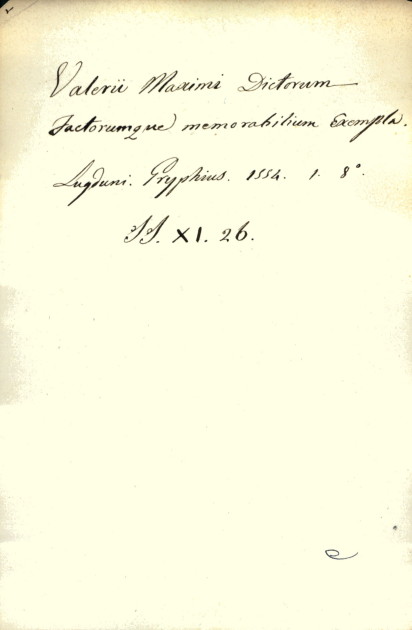 Valerii Maximi Dictorum
Factorumque memorabilium Exempla.
Lugduni. Gryphius. 1554. 1. 8°.
SS. XI. 26.